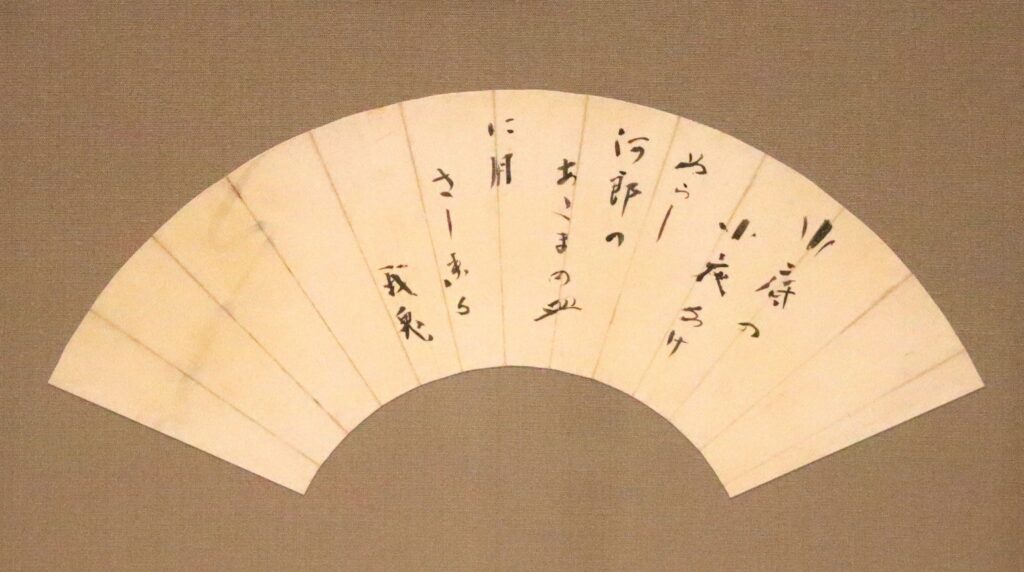 水府の
小夜ふけ
ぬらし
河郎の
あたまの皿
に月
さし来る
我鬼